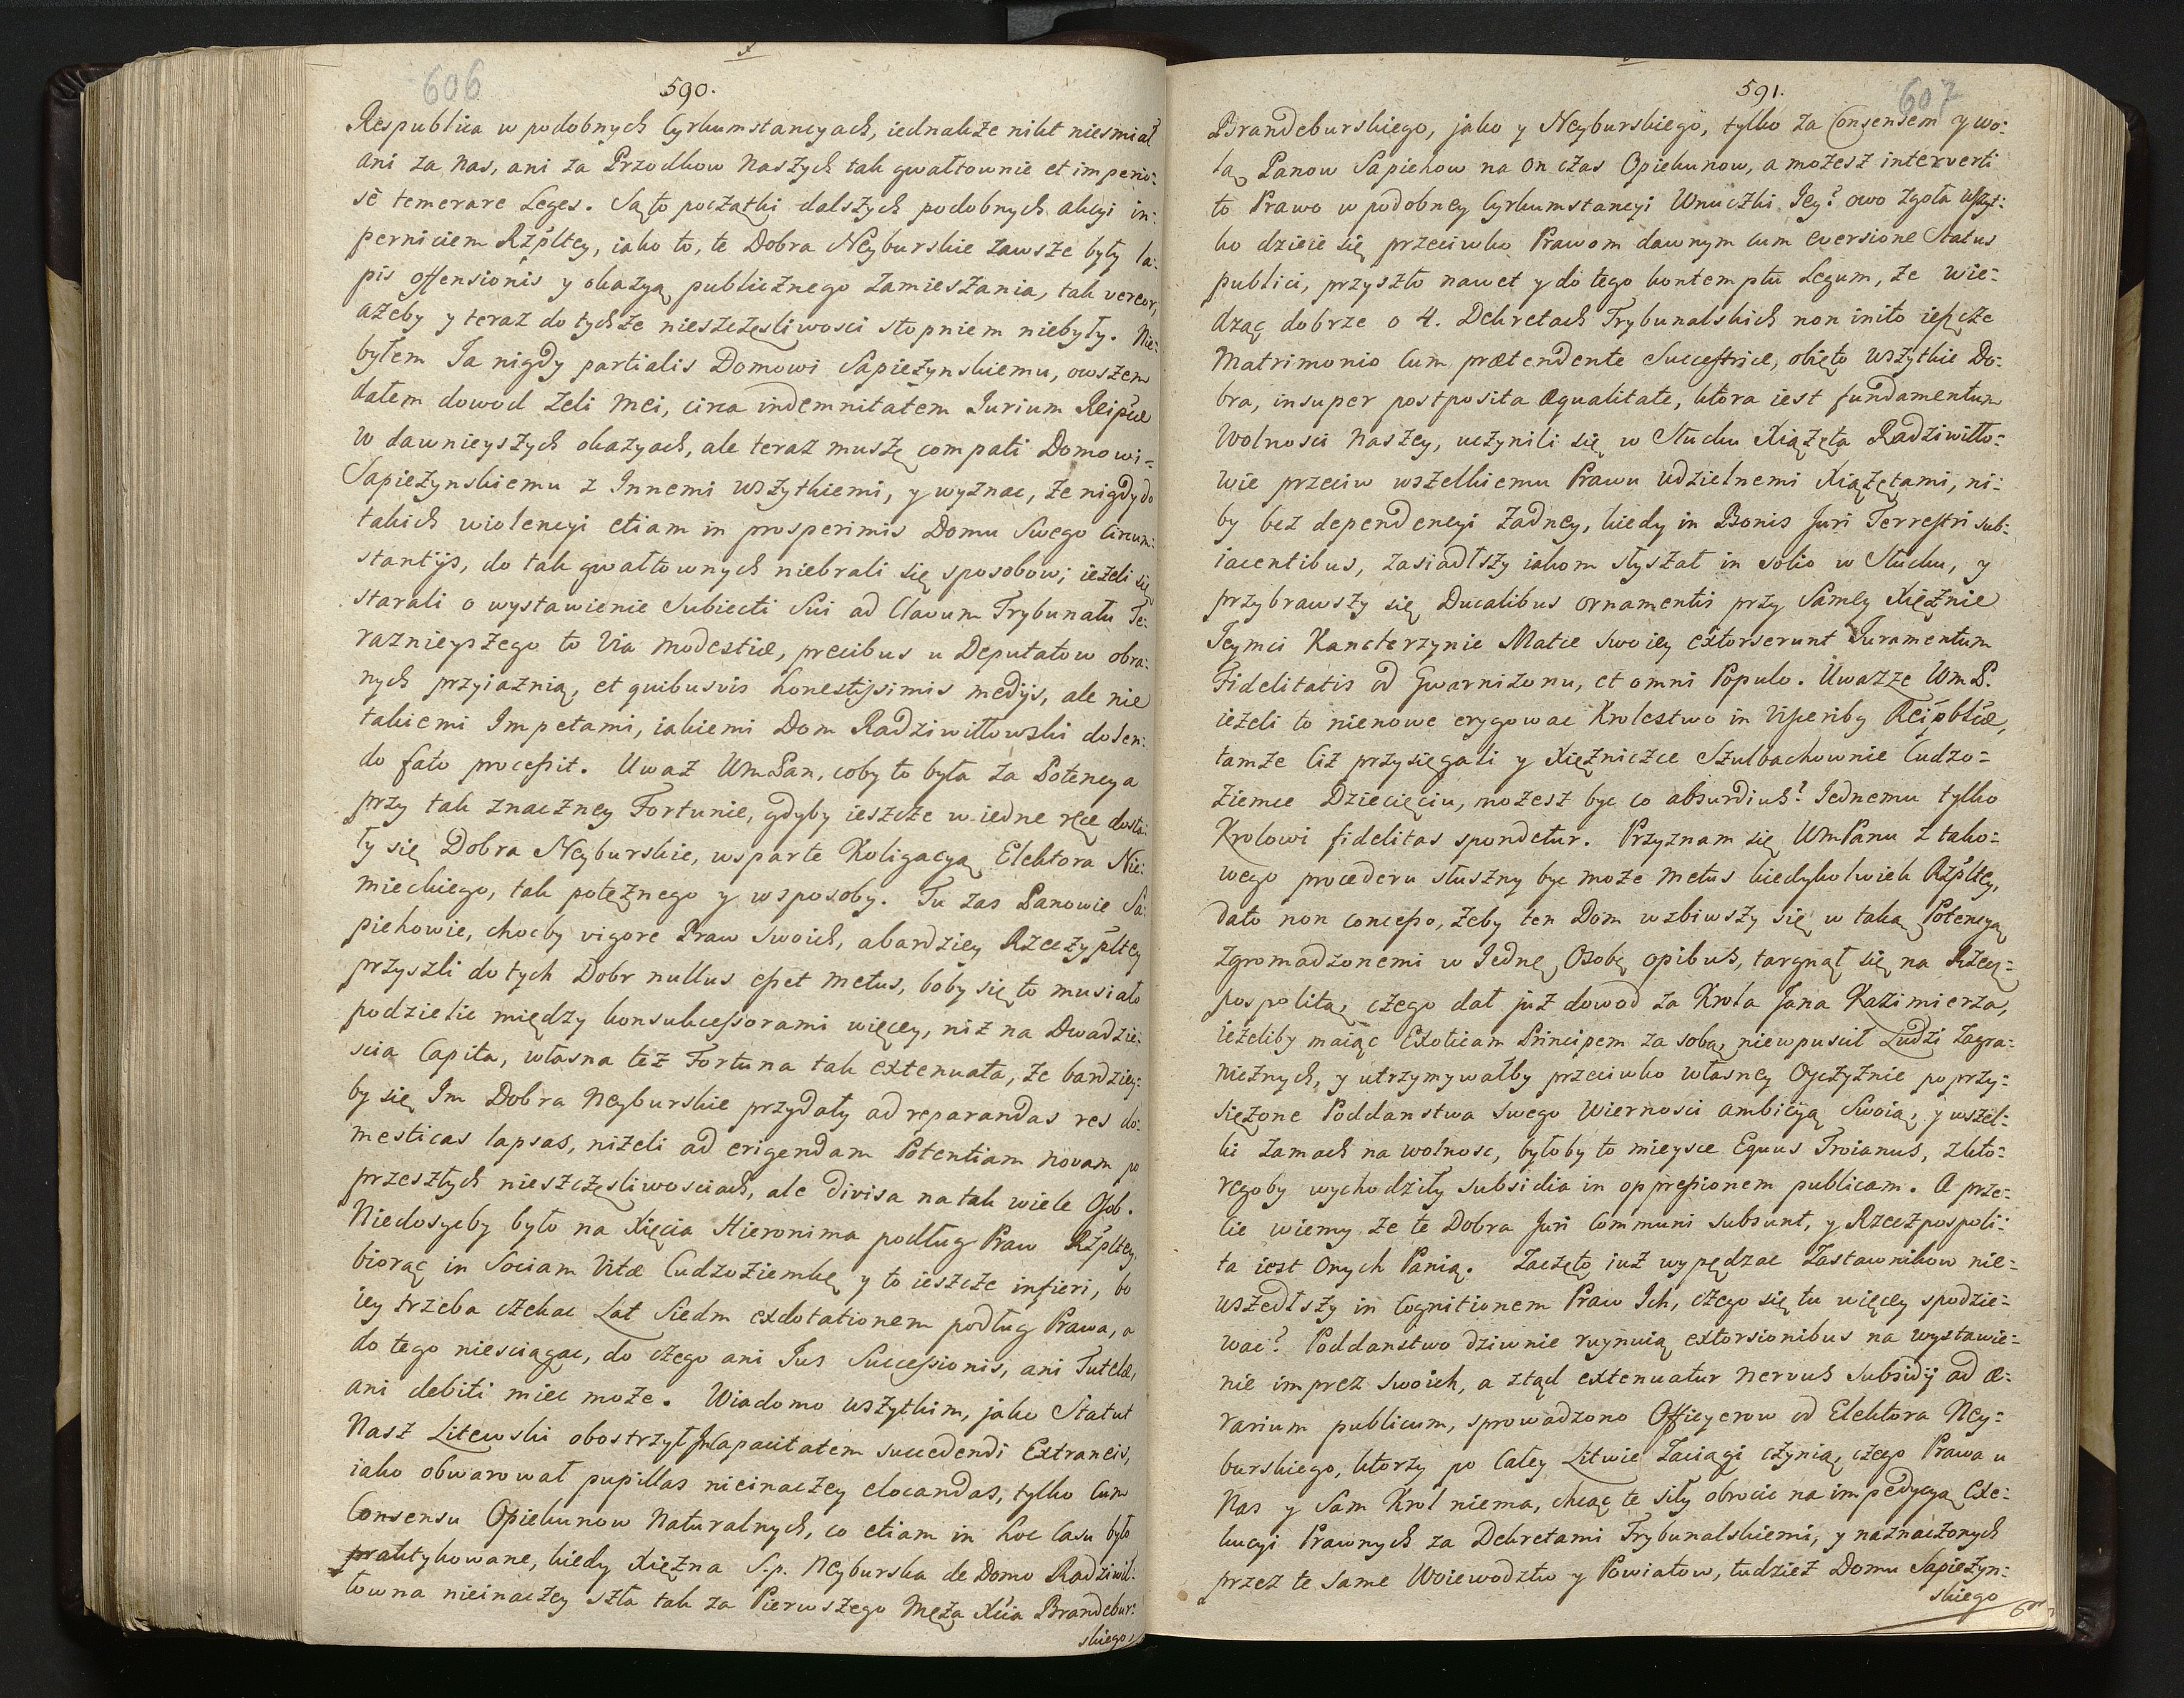 606
590.
Respublica w podobnych Cyrkumstancyach, iednakże nikt niesmiał
ani za nas, ani za Przodkow naszych tak gwałtownie et imperio-
sè temerare Leges. Są to początki dalszych podobnych akcyi in-
perniciem Rzpltey, iako to, te Dobra Neyburskie zawsze były la-
pis offensionis y okazyą publicznego zamieszania, tak vereor,
ażeby y teraz do tychże nieszczęsliwosci stopniem niebyły. Nie-
byłem Ja nigdy partialis Domowi Sapieżynskiemu, owszem
dałem dowod zeli mei, circa indemnitatem Jurium Reipcæ
w dawnieyszych okazyach, ale teraz muszę compati Domowi-
Sapieżynskiemu z Innemi wszytkiemi, y wyznac, że nigdy do
takich wiolencyi etiam in prosperimis Domu Swego Circum-
stantijs, do tak gwałtownych niebrali się sposobow; ieżeli się
starali o wystawienie Subiecti Sui ad Clavum Trybunału Te-
raznieyszego to Via modestiæ, precibus u Deputatow obra-
nych przyiaznią, et quibusvis honestissimis medijs, ale nie
takiemi Impetami, iakiemi Dom Radziwiłłowski dolen-
do fato processit. Uważ WmPan, coby to była za Potencya
przy tak znaczney Fortunie, gdyby ieszcze w iedne ręce dosta-
ły się Dobra Neyburskie, wsparte Koligacyą Elektora Nie-
mieckiego, tak potężnego y w sposoby. Tu zas Panowie Sa-
piehowie, chocby vigore Praw swoich, abardziey Rzeczypltey
przyszli do tych Dobr nullus esset metus, boby się to musiało
podzielic między konsukcessorami więcey, niż na Dwadzie-
scia Capita, własna też Fortuna tak extenuata, że bardziey-
by się Im Dobra Neyburskie przydały ad reparandas res do-
mesticas lapsas, niżeli ad erigendam Potentiam novam po
przeszłych nieszczęsliwosciach, ale divisa na tak wiele Osob.
Niedosycby było na Xięcia Hieronima podług Praw Rzpltey,
biorąc in Sociam Vitæ Cudzoziemkę y to ieszcze infieri, bo
iey trzeba czekac Lat Siedm exdotationem podług Prawa, a
do tego niesciągac, do czego ani Jus Successionis, ani Tutelæ,
ani debiti miec może. Wiadomo wszytkim, jako Statut
Nasz Litewski obostrzył Incapacitatem succedendi Extraneis,
iako obwarował pupillas nieinaczey elocandas, tylko Cum
Consensu Opiekunow Naturalnych, co etiam in hoc Casu było
praktykowane, kiedy Xiężna S.p. Neyburska de Domo Radziwił-
łowna nieinaczey szła tak za Pierwszego Męża Xcia Brandebur-
skiego,
607
591.
Brandeburskiego, jako y Neyburskiego, tylko za Consensem y wo-
lą Panow Sapiehow na on czas Opiekunow, a możesz interverti
to Prawo w podobney Cyrkumstancyi Wnuczki Jey? owo zgoła wszyt-
ko dzieie się przeciwko Prawom dawnym cum eversione Status
publici, przyszło nawet y do tego kontemptu Legum, że wie-
dząc dobrze o 4. Dekretach Trybunalskich non inito ieszcze
Matrimonio Cum prætendente Successtrice, obięto wszytkie Do-
bra, insuper postposita æqualitate, ktora iest fundamentum
Wolnosci Naszey, uczynili się w Słucku Xiążęta Radziwiłło-
wie przeciw wszelkiemu Prawu udzielnemi Xiążętami, ni-
by bez dependencyi żadney, kiedy in Bonis Juri Terrestri sub-
iacentibus, zasiadłszy iakom słyszał in solio w Słucku, y
przybrawszy się Ducalibus ornamentis przy Samey Xiężnie
Jeymci Kanclerzynie Matce swoiey extorserunt Juramentum
Fidelitatis od Gwarnizonu, et omni Populo. Uważże WmP.
ieżeli to nienowe erygowac Krolestwo in Visceriby Reipblcæ,
tamże Ciż przysięgali y Xiężniczce Szulbachownie Cudzo-
ziemce Dziecięciu, możesz byc co absurdius? Jednemu tylko
Krolowi fidelitas spondetur. Przyznam się WmPanu z tako-
wego procederu słuszny byc może metus kiedykolwiek Rzpltey,
dato non concesso, żeby ten Dom wzbiwszy się w taką Potencyą
zgromadzonemi w Jednę Osobę opibus, targnął się na Rzecz-
pospolitą, czego dał już dowod za Krola Jana Kazimierza,
ieżeliby maiąc Exoticam Principem za sobą, niewpuscił Ludzi zagra-
nicznych, y utrzymywałby przeciwko własney Oyczyznie poprzy-
siężone Poddanstwa swego Wiernosci ambicyą Swoią, y wszel-
ki zamach na wolnosc, byłoby to mieysce Equus Troianus, z kto-
regoby wychodziły subsidia in oppressionem publicam. A prze-
cie wiemy że te Dobra Juri Communi subsunt, y Rzeczpospoli-
ta iest Onych Panią. Zaczęto iuż wypędzac Zastawnikow nie-
wszedłszy in Cognitionem Praw Ich, czego się tu więcey spodzie-
wac? Poddanstwo dziwnie ruynuią extorsionibus na wystawie-
nie imprez swoich, a ztąd extenuatur nervus subsidij ad æ-
rarium publicum, sprowadzono Officyerow od Elektora Ney-
burskiego, ktorzy po Całey Litwie Zaciągi czynią, czego Prawa u
Nas y Sam Krol niema, chcąc te siły obrocic na impedycyą Exe-
kucyi Prawnych za Dekretami Trybunalskiemi, y naznaczonych
przez te same Woiewodztw y Powiatow, tudzież Domu Sapieżyn-
skiego